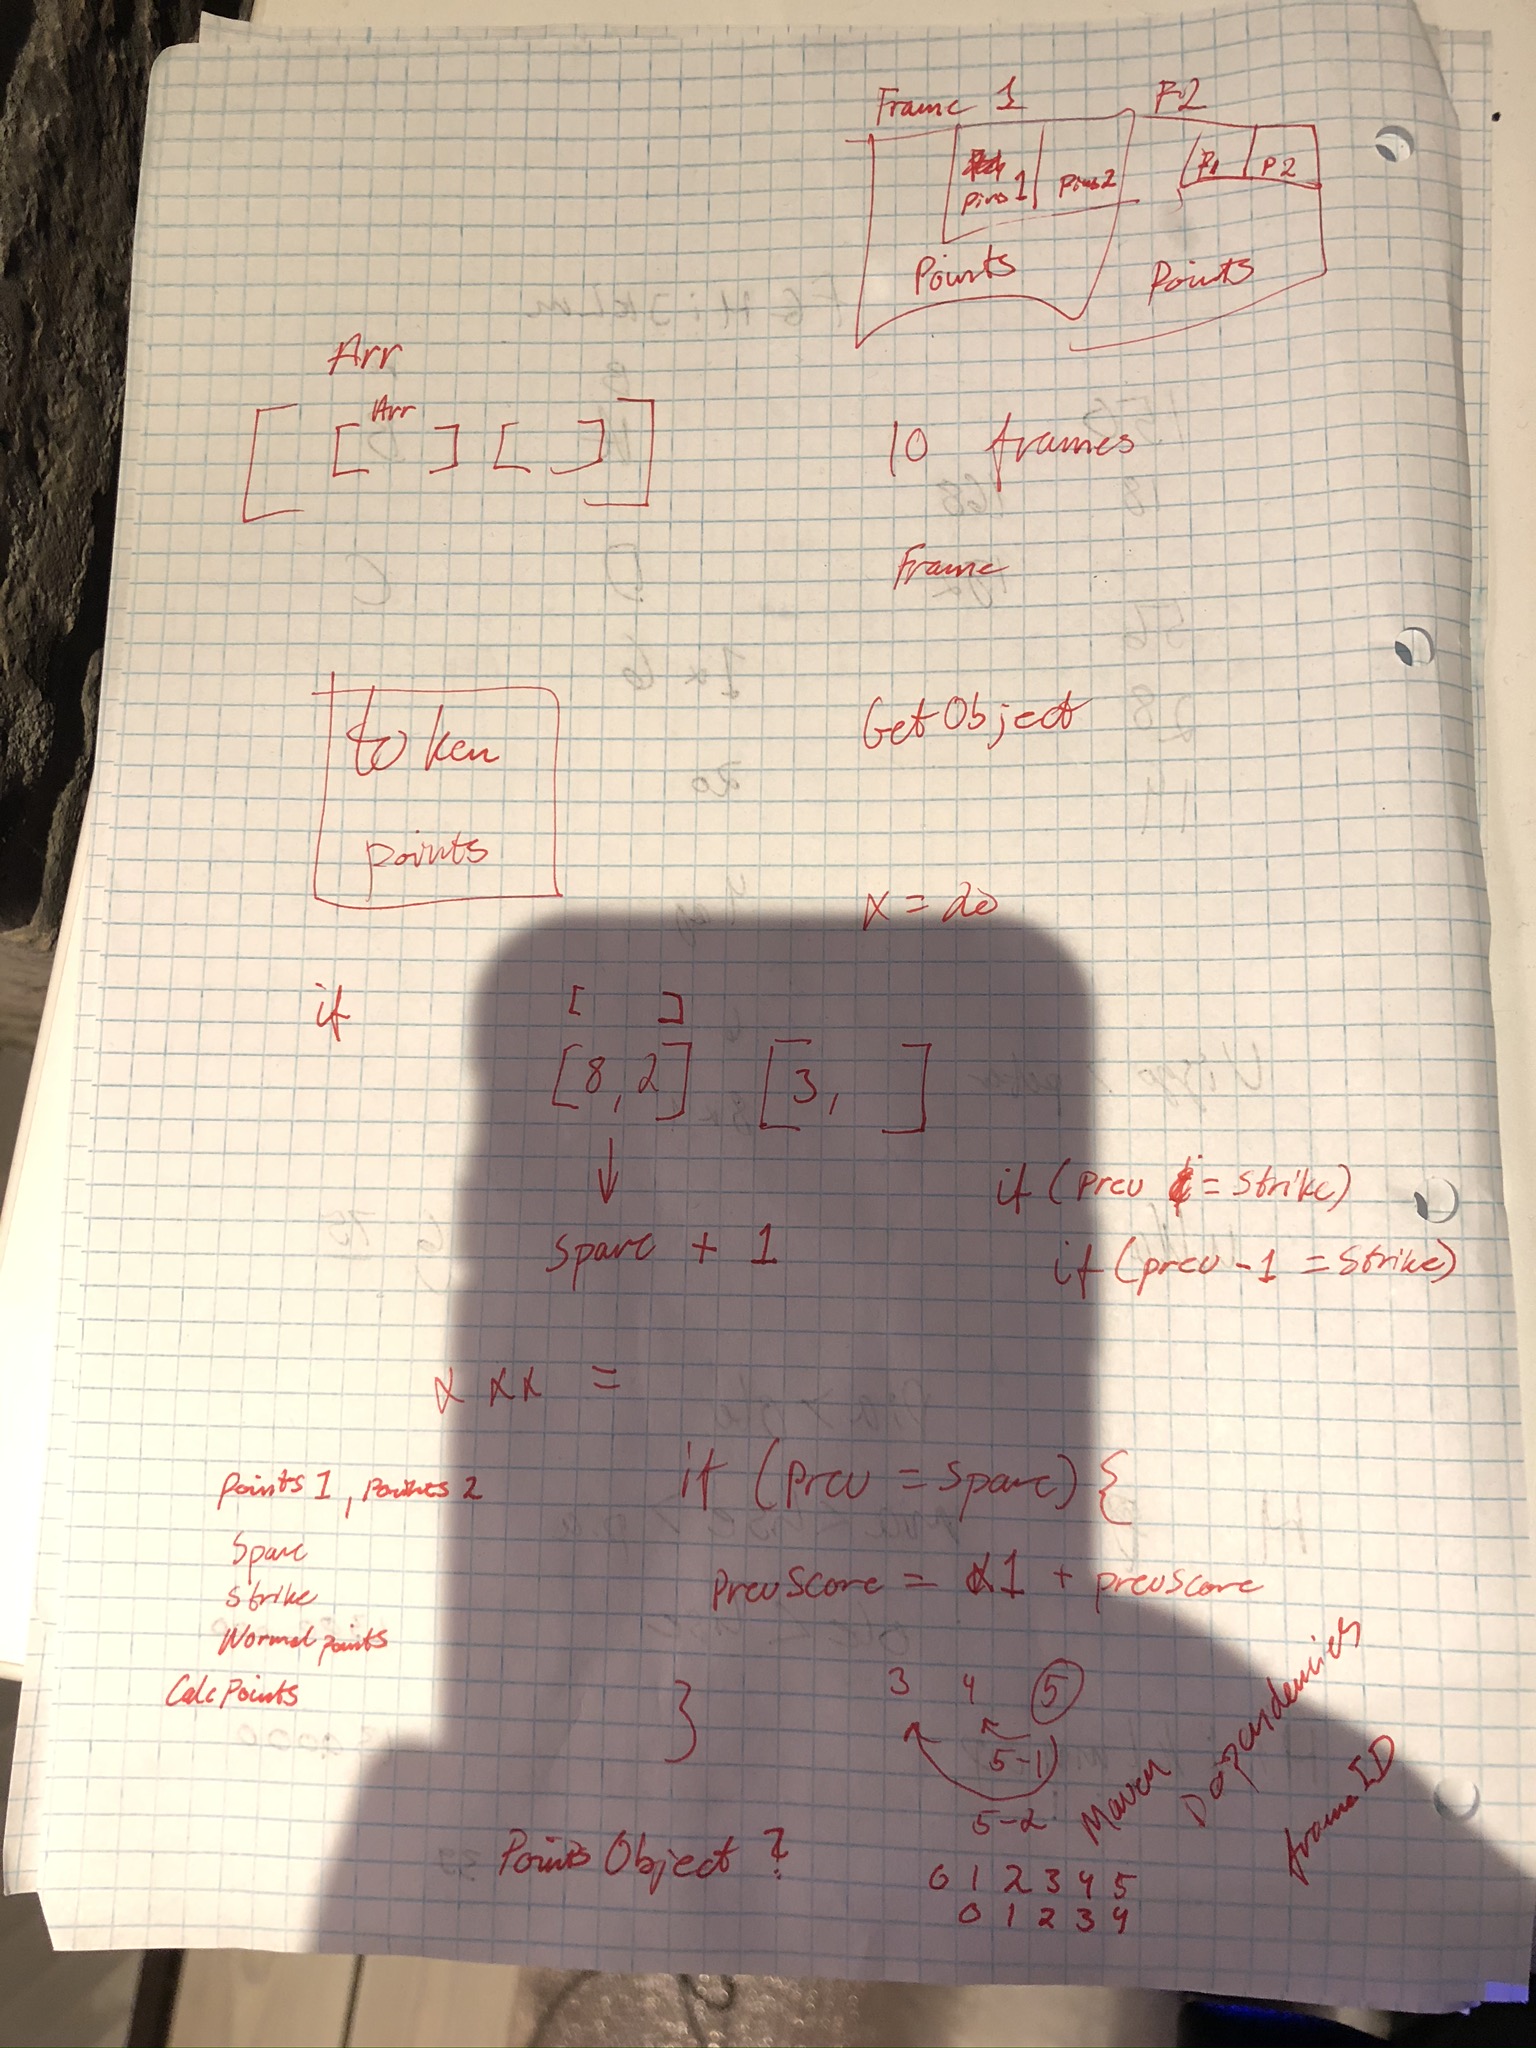 Frame 1 F2
pins 1 pins 2 P1 P2
Points Points
Arr
Arr
[ [ ] [ ] ]
10 frames
Frame
token
points
GetObject
x = 20
if [ ]
[8,2] [3, ]
spare + 1
if (prev = strike)
if (prev - 1 = strike)
x x x =
points 1, points 2
Spare
Strike
Normal points
Calc Points
if (prev = spare) {
prevScore = 1 + prevscore
}
3 4 5
5-1
5-2
Maven
Dependencies
frame ID
Points Object ?
0 1 2 3 4 5
0 1 2 3 4